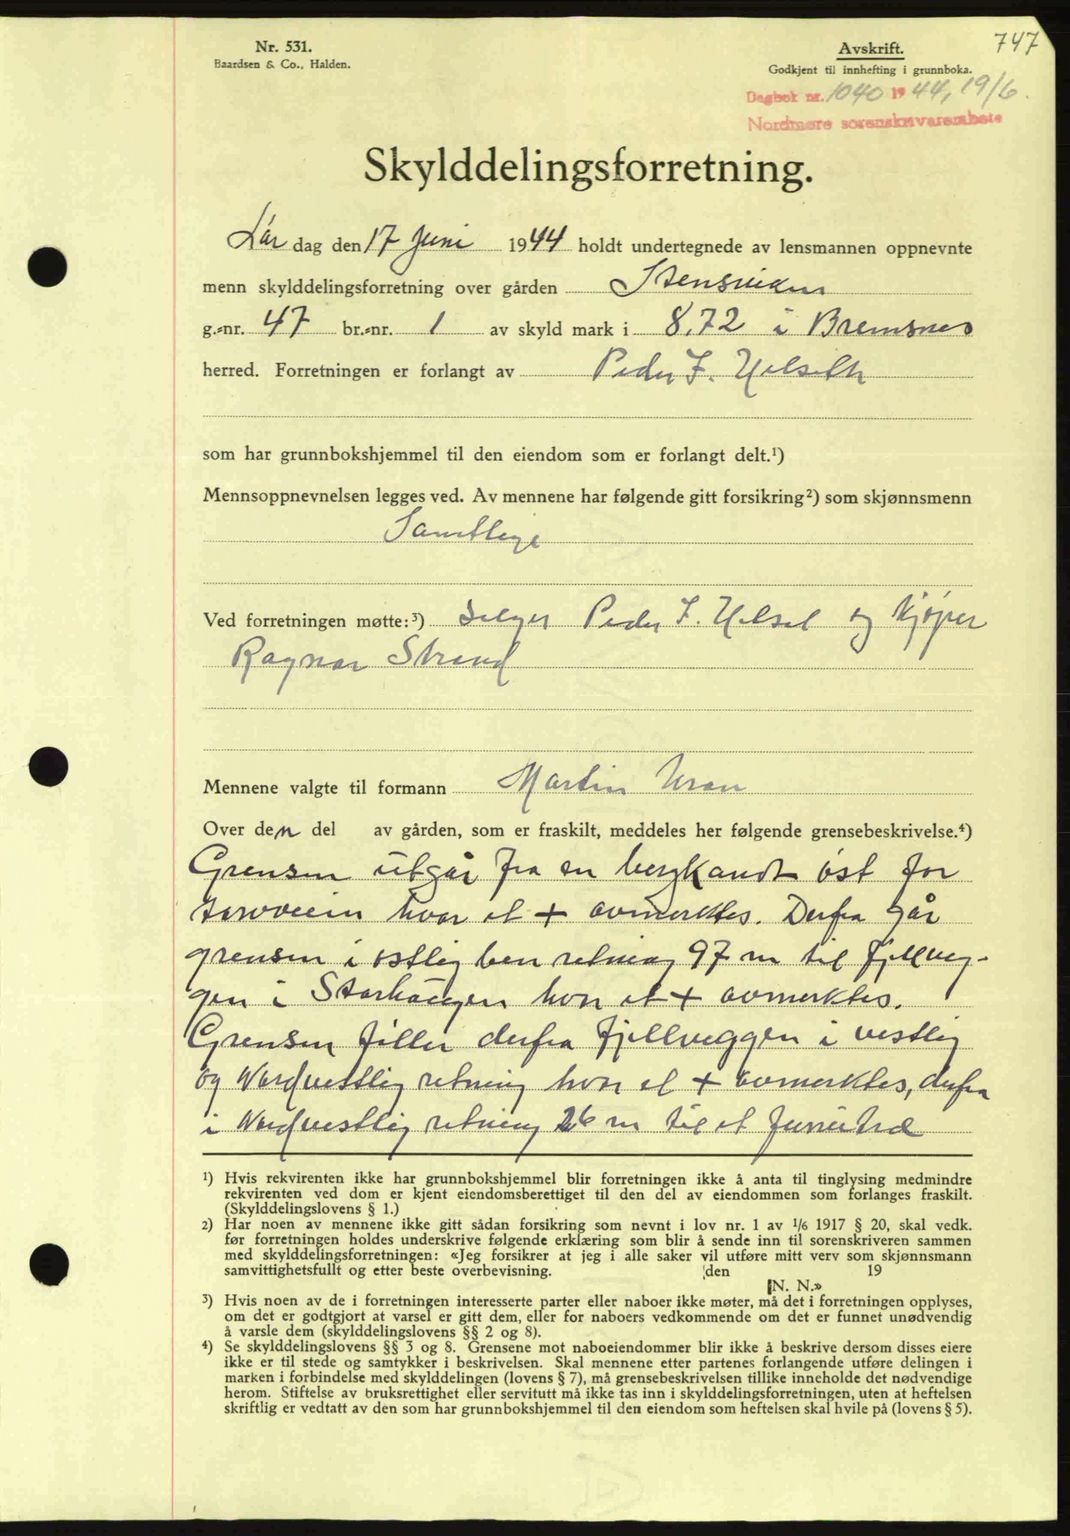 747
Nr. 531.
Baardsen & Co., Halden.
Avskrift.
Godkjent til innhefting i grunnboka.
Dagbok nr. 1040 1944, 19/6.
Nordmøre sorenskriverembete
Skylddelingsforretning.
Lør dag den 17 Juni 1944 holdt undertegnede av lensmannen oppnevnte
menn skylddelingsforretning over gården Stensviken
g.-nr. 47 br.-nr. 1 av skyld mark i 8,72 i Bremsnes
herred. Forretningen er forlangt av Peder J. Helseth
som har grunnbokshjemmel til den eiendom som er forlangt delt.¹)
Mennsoppnevnelsen legges ved. Av mennene har følgende gitt forsikring²) som skjønnsmenn
Samtlige
Ved forretningen møtte:³) Selger Peder J. Helset og Kjøper
Ragnar Strand
Mennene valgte til formann Martin Uran
Over den del av gården, som er fraskilt, meddeles her følgende grensebeskrivelse.⁴)
Grensen utgår fra en bergkandt øst for
hvor et + avmerktes. Derfra går
grensen i østlig ben retning 97 m til fjellveg-
gen i Storhaugen hvor et + avmerktes.
Grensen føller derfra fjellveggen i vestlig
og Nordvestlig retning hvor et + avmerktes, derfra
i Nordvestlig retning 26 m til et furutræ
¹) Hvis rekvirenten ikke har grunnbokshjemmel blir forretningen ikke å anta til tinglysing medmindre
rekvirenten ved dom er kjent eiendomsberettiget til den del av eiendommen som forlanges fraskilt.
(Skylddelingslovens § 1.)
²) Har noen av mennene ikke gitt sådan forsikring som nevnt i lov nr. 1 av 1/6 1917 § 20, skal vedk.
før forretningen holdes underskrive følgende erklæring som blir å sende inn til sorenskriveren sammen
med skylddelingsforretningen: «Jeg forsikrer at jeg i alle saker vil utføre mitt verv som skjønnsmann
samvittighetsfullt og etter beste overbevisning. den 19
[N. N.»
³) Hvis noen av de i forretningen interesserte parter eller naboer ikke møter, må det i forretningen opplyses,
om det er godtgjort at varsel er gitt dem, eller for naboers vedkommende om det er funnet unødvendig
å varsle dem (skylddelingslovens §§ 2 og 8).
⁴) Se skylddelingslovens §§ 3 og 8. Grensene mot naboeiendommer blir ikke å beskrive dersom disses eiere
ikke er til stede og samtykker i beskrivelsen. Skal mennene etter partenes forlangende utføre delingen i
marken i forbindelse med skylddelingen (lovens § 7), må grensebeskrivelsen tillike inneholde det nødvendige
herom. Stiftelse av bruksrettighet eller servitutt må ikke tas inn i skylddelingsforretningen, uten at heftelsen
skriftlig er vedtatt av den som har grunnbokshjemmel til den eiendom som heftelsen skal hvile på (lovens § 5).